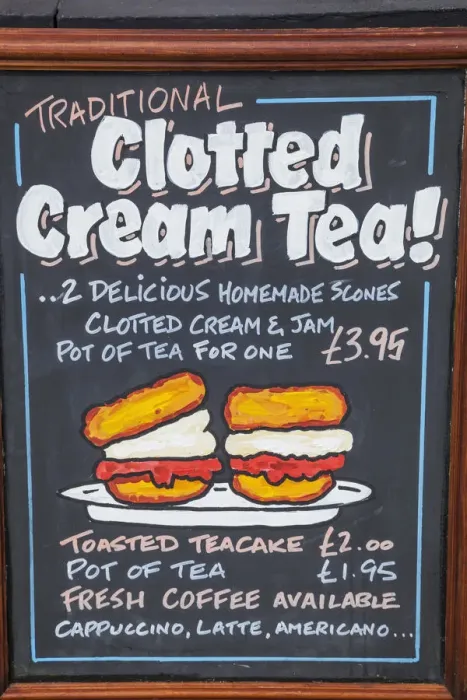 TRADITIONAL
Clotted
Cream Tea!
..2 DELICIOUS HOMEMADE SCONES
CLOTTED CREAM & JAM
POT OF TEA FOR ONE £3.95
TOASTED TEACAKE £2.00
POT OF TEA £1.95
FRESH COFFEE AVAILABLE
CAPPUCCINO, LATTE, AMERICANO...